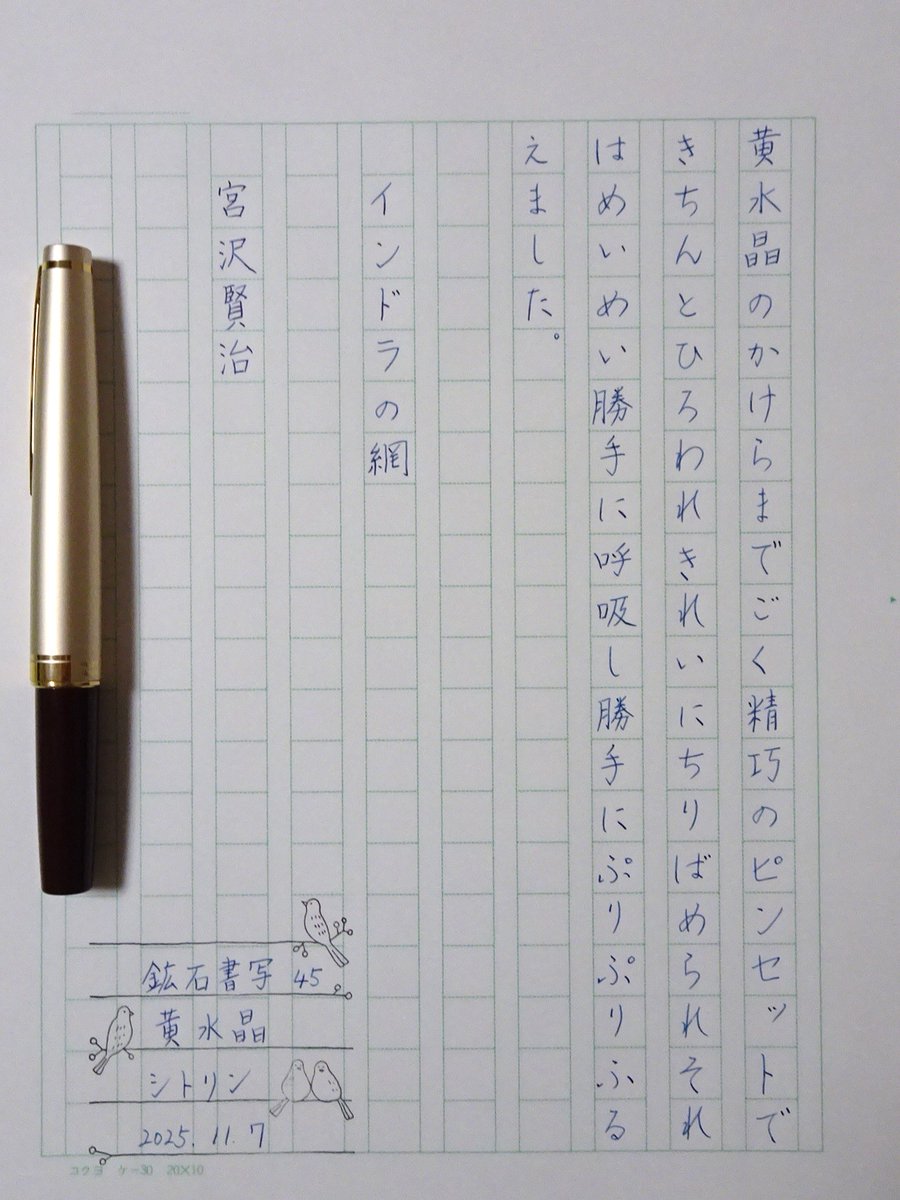 黄水晶のかけらまでごく精巧のピンセットで
きちんとひろわれきれいにちりばめられそれ
はめいめい勝手に呼吸し勝手にぷりぷりふる
えました。
インドラの網
宮沢賢治
鉱石書写 45
黄水晶
シトリン
2025.11.7
コクヨ ケ-30 20×10